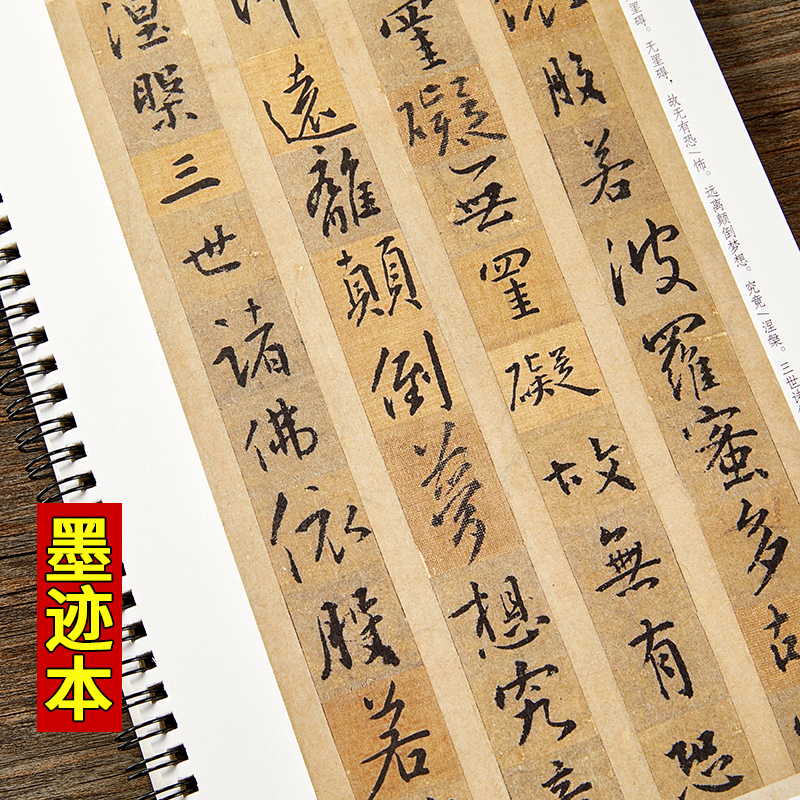 罣碍。无罣碍，故无有恐/怖。远离颠倒梦想。究竟/涅槃。三世诸
般若波羅蜜多
罣礙無罣礙故無有恐
遠離顛倒夢想究
涅槃三世諸佛依般若
墨迹本